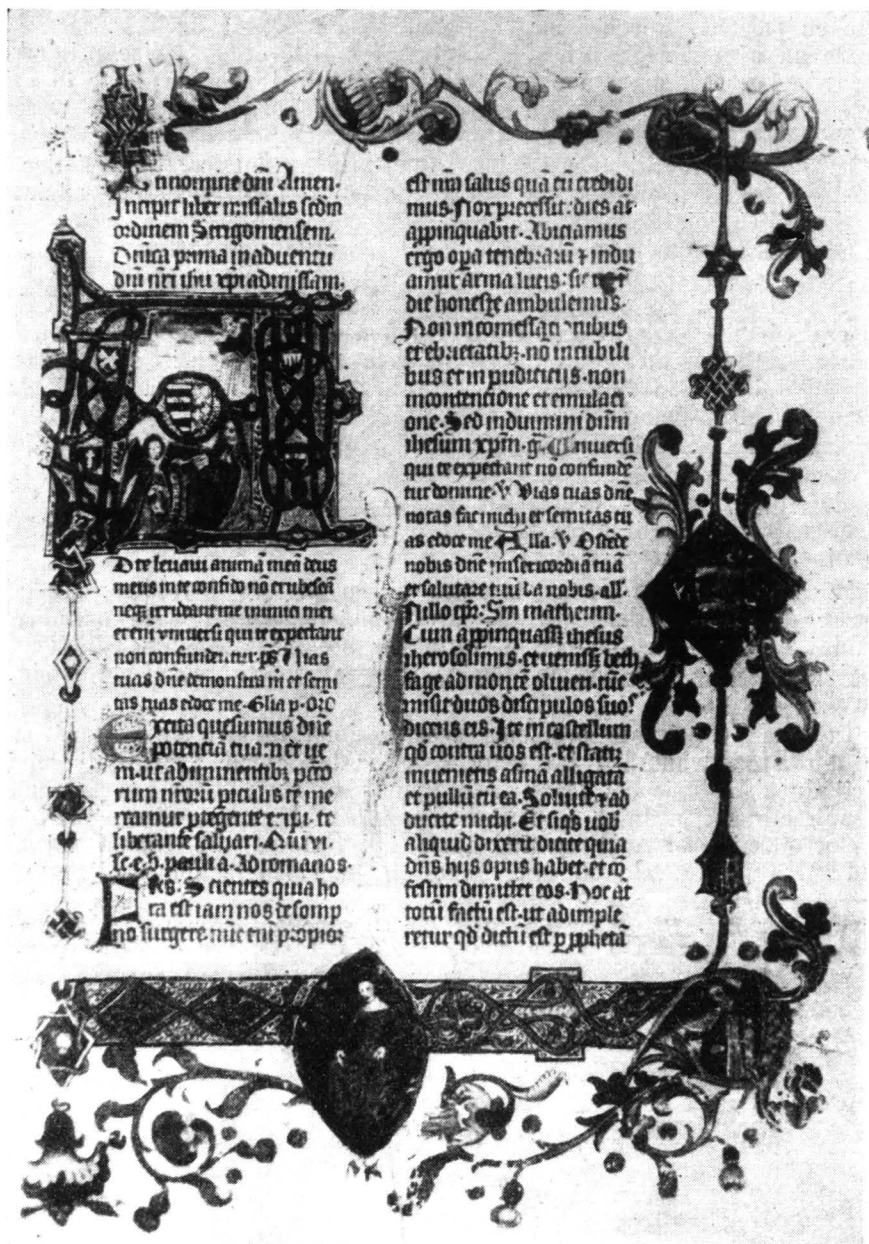 In nomine dni Amen.
Incipit liber missalis sedm
ordinem Strigoniensem.
Dnica prima in adventu
dni nri ihu xpi ad missam.
D te levavi animā meā deus
meus in te confido nō erubescā
neqz irrideant me inimici mei
et eni vniversi qui te expectant
non confundentur. ps Vias
tuas dne demonstra m et semi
tas tuas edoce me. Glia p. Orō
Excita quesumus dne
potenciā tuam et ve
ni. ut ab iminentibz pctō
rum nrorū piculis te me
reamur ptegente eripi. te
liberante salvari. Qui vi.
Lc. e. b. pauli a. Ad romanos.
Fres: Scientes quia ho
ra est iam nos de somp
no surgere. nūc eni propior
est nra salus quā cū credidi
mus. Nox precessit: dies aūt
appinquabit. Abiciamus
ergo opa tenebrarū ⁊ indu
amur arma lucis: sic ut
die honeste ambulemus.
Non in comessationibus
et ebrietatibz. nō in cubili
bus et in pudiciciis. non
in contencione et emulaci
one. Sed induimini dnm
ihesum xpm. g. Universi
qui te expectant nō confundē
tur domine. V Vias tuas dne
notas fac michi et semitas tu
as edoce me. Alla. V Ostēde
nobis dne misericordiā tuā
et salutare tuū da nobis. all.
In illo tpr: Sm matheum.
Cum appinquasset ihesus
iherosolimis. et venisset beth
fage ad montē oliveti. tūc
misit duos discipulos suos
dicens eis. Ite in castellum
qd contra vos est. et statī
invenietis asinā alligatā
et pullū cū ea. Solvite ⁊ ad
ducite michi. Et siqs vob
aliquid dixerit dicite quia
dns hiis opus habet. et cō
festim dimittet eos. Hoc aūt
totū factū est. ut adimple
retur qd dictū est p pphetā